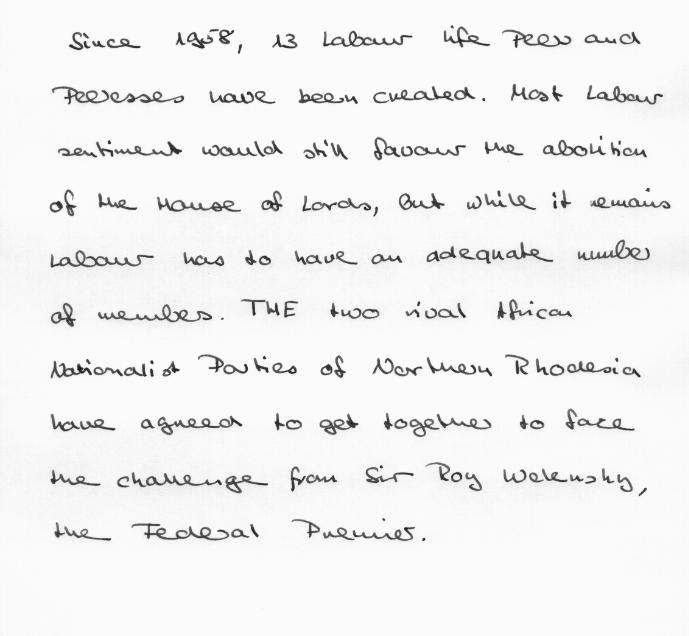 Since 1958, 13 Labour life Peers and
Peeresses have been created. Most Labour
sentiment would still favour the abolition
of the House of Lords, but while it remains
Labour has to have an adequate number
of members. THE two rival African
Nationalist Parties of Northern Rhodesia
have agreed to get together to face
the challenge from Sir Roy Welensky,
the Federal Premier.